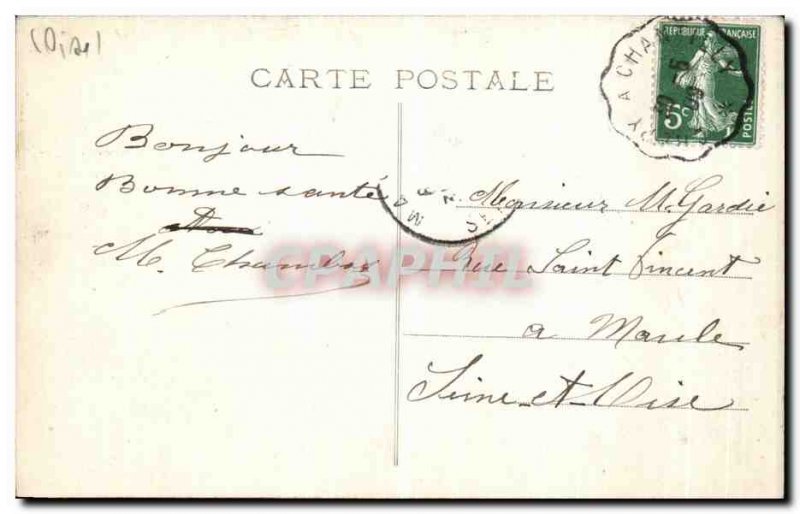 (Oise)
CARTE POSTALE
REPUBLIQUE FRANÇAISE
5c
POSTES
A CHANTILLY
Bonjour
Bonne santé
M. Chambs
Monsieur M. Gardie
Rue Saint Vincent
a Maule
Seine-et-Oise
CPAPHIL